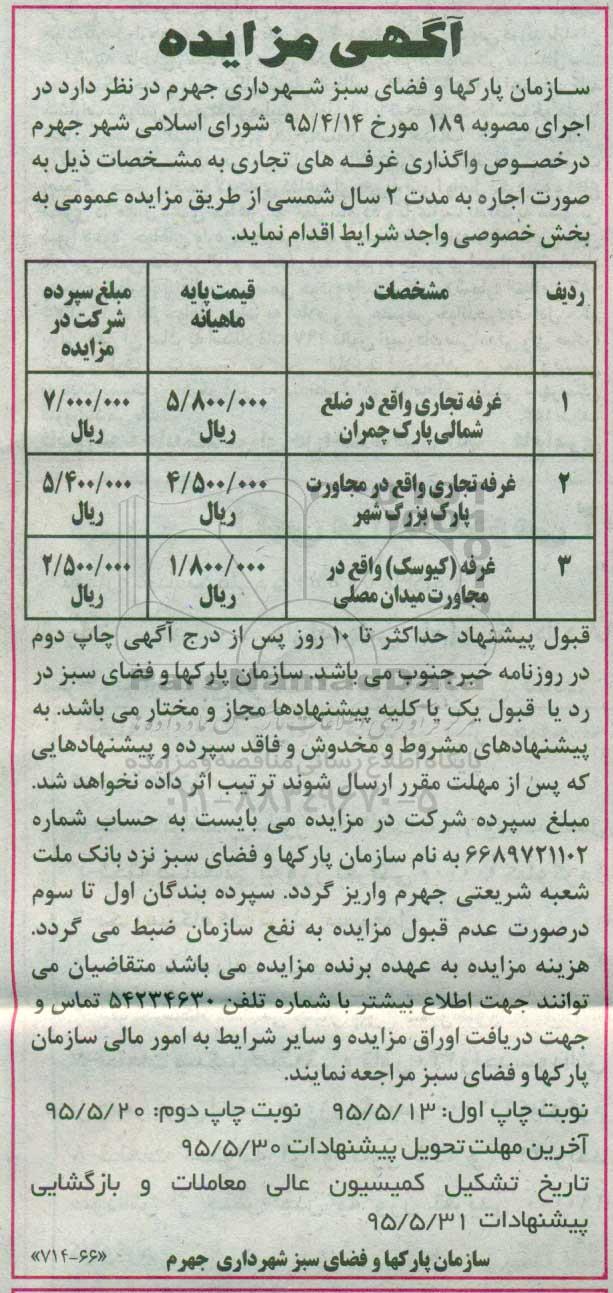 آگهی مزایده
سازمان پارکها و فضای سبز شهرداری جهرم در نظر دارد در
اجرای مصوبه ۱۸۹ مورخ ۹۵/۴/۱۴ شورای اسلامی شهر جهرم
درخصوص واگذاری غرفه های تجاری به مشخصات ذیل به
صورت اجاره به مدت ۲ سال شمسی از طریق مزایده عمومی به
بخش خصوصی واجد شرایط اقدام نماید.
ردیف مشخصات قیمت پایه ماهیانه مبلغ سپرده شرکت در مزایده
۱ غرفه تجاری واقع در ضلع شمالی پارک چمران ۵/۸۰۰/۰۰۰ ریال ۷/۰۰۰/۰۰۰ ریال
۲ غرفه تجاری واقع در مجاورت پارک بزرگ شهر ۴/۵۰۰/۰۰۰ ریال ۵/۴۰۰/۰۰۰ ریال
۳ غرفه (کیوسک) واقع در مجاورت میدان مصلی ۱/۸۰۰/۰۰۰ ریال ۲/۵۰۰/۰۰۰ ریال
قبول پیشنهاد حداکثر تا ۱۰ روز پس از درج آگهی چاپ دوم
در روزنامه خبرجنوب می باشد. سازمان پارکها و فضای سبز در
رد یا قبول یک یا کلیه پیشنهادها مجاز و مختار می باشد. به
پیشنهادهای مشروط و مخدوش و فاقد سپرده و پیشنهادهایی
که پس از مهلت مقرر ارسال شوند ترتیب اثر داده نخواهد شد.
مبلغ سپرده شرکت در مزایده می بایست به حساب شماره
۶۶۸۹۷۲۱۱۰۲ به نام سازمان پارکها و فضای سبز نزد بانک ملت
شعبه شریعتی جهرم واریز گردد. سپرده بندگان اول تا سوم
درصورت عدم قبول مزایده به نفع سازمان ضبط می گردد.
هزینه مزایده به عهده برنده مزایده می باشد متقاضیان می
توانند جهت اطلاع بیشتر با شماره تلفن ۵۴۲۳۴۶۳۰ تماس و
جهت دریافت اوراق مزایده و سایر شرایط به امور مالی سازمان
پارکها و فضای سبز مراجعه نمایند.
نوبت چاپ اول: ۹۵/۵/۱۳ نوبت چاپ دوم: ۹۵/۵/۲۰
آخرین مهلت تحویل پیشنهادات ۹۵/۵/۳۰
تاریخ تشکیل کمیسیون عالی معاملات و بازگشایی
پیشنهادات ۹۵/۵/۳۱
سازمان پارکها و فضای سبز شهرداری جهرم «۷۱۴-۶۶»
ParsNamadData
پایگاه اطلاع رسانی مناقصه و مزایده
۰۲۱-۸۸۳۴۹۶۷۰-۵